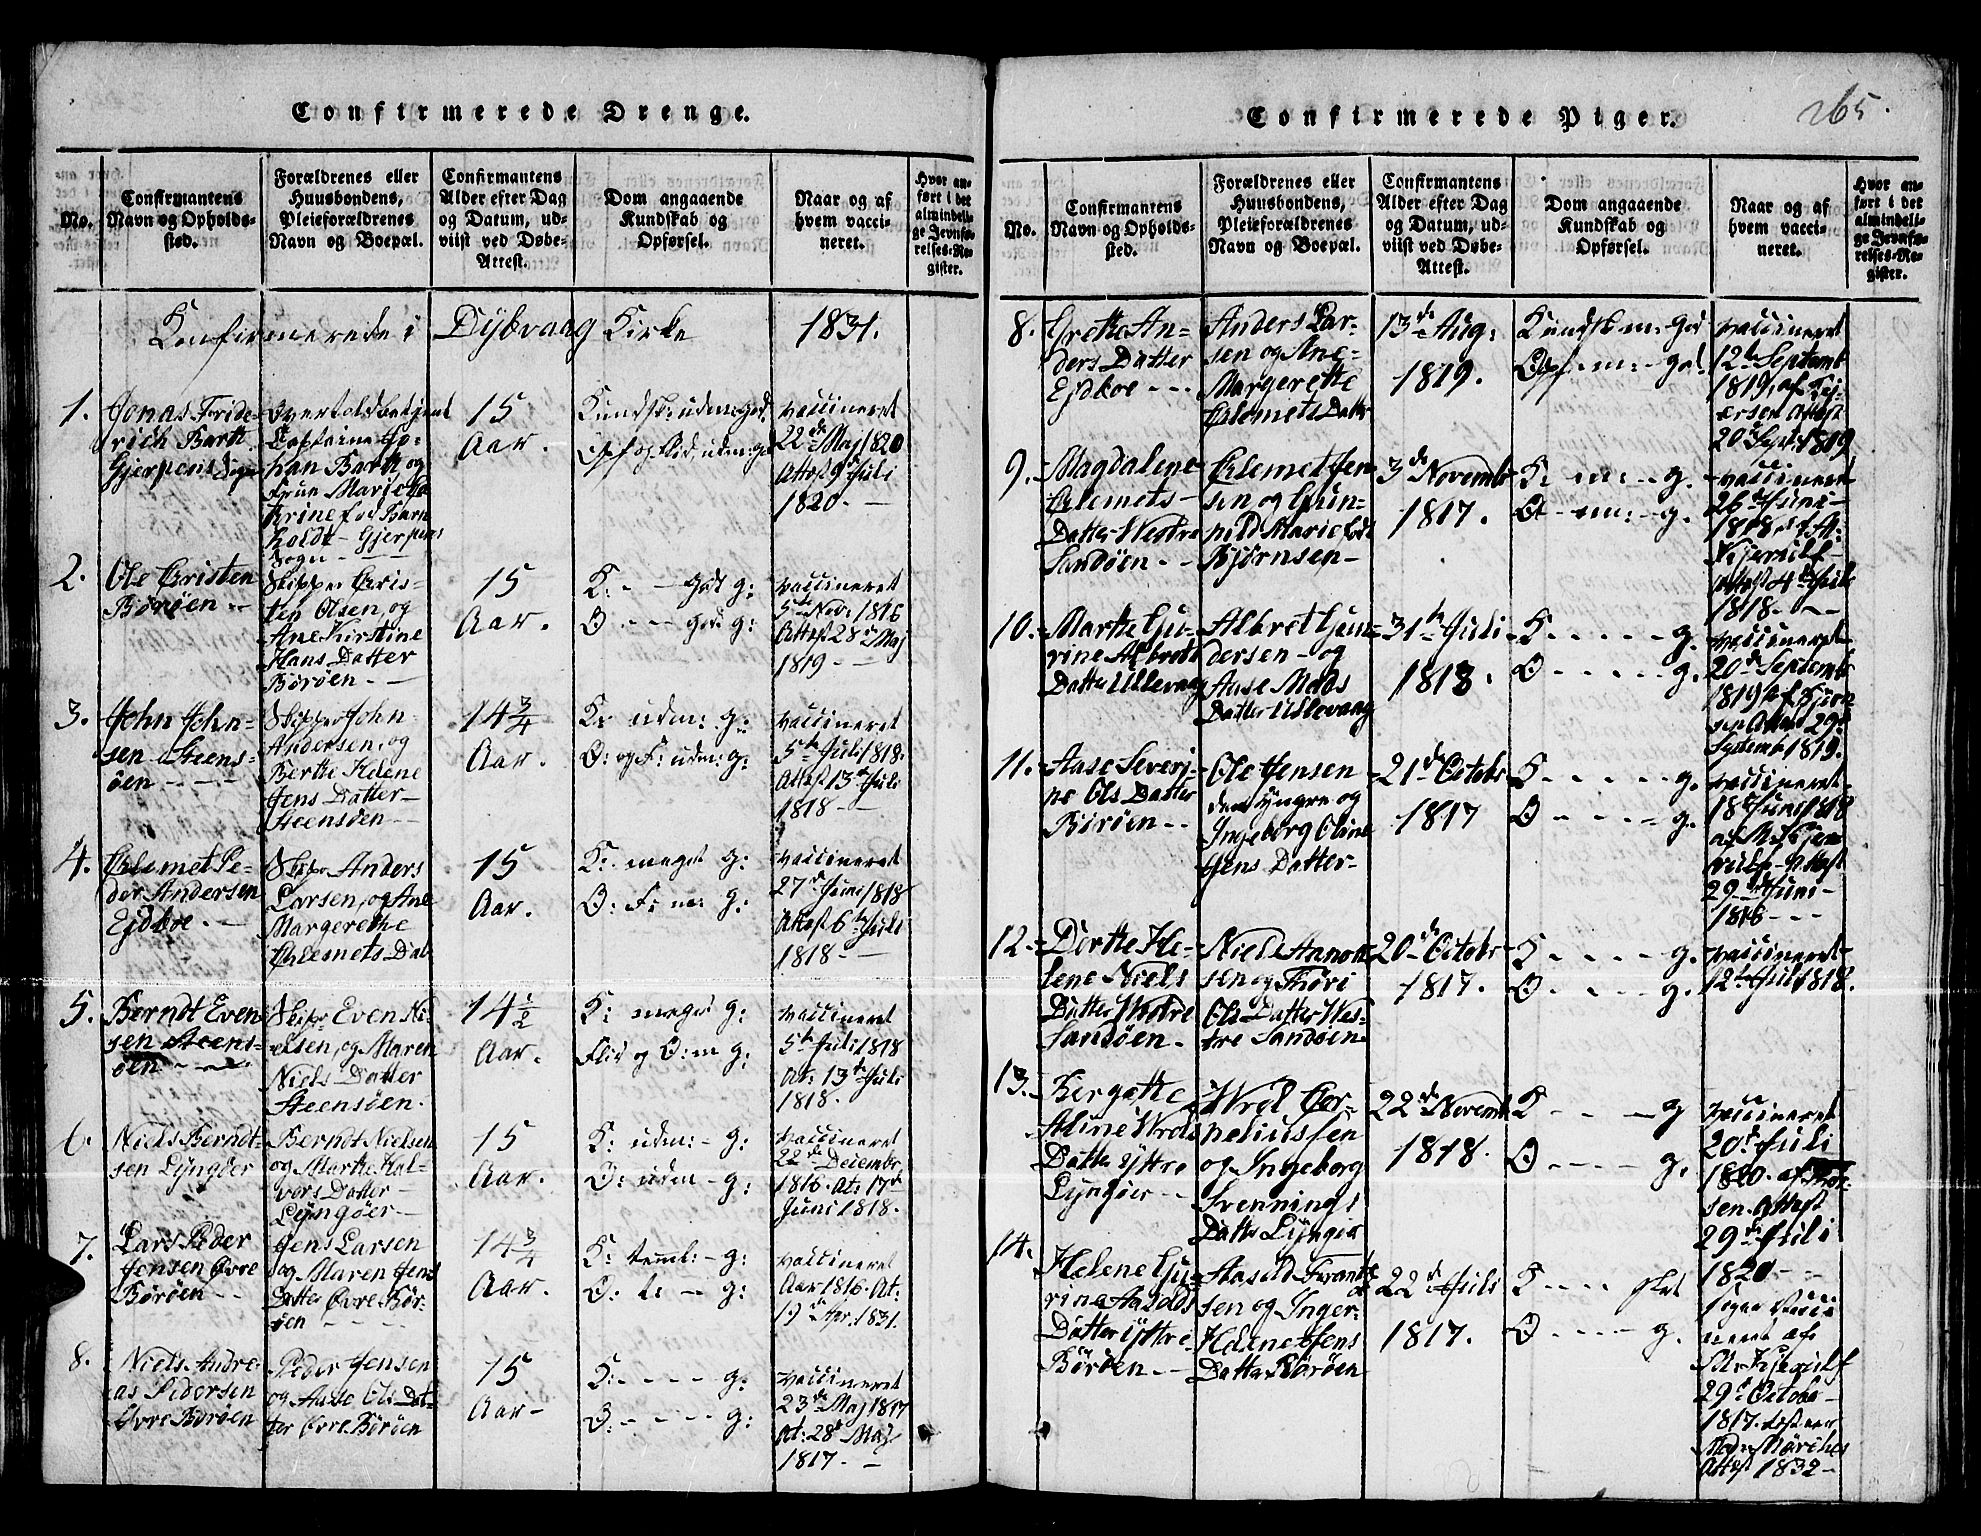 Confirmerede Drenge.
No.
Confirmantens
Navn og Opholds-
sted.
Forældrenes eller
Huusbondens,
Pleieforældrenes
Navn og Boepæl.
Confirmantens
Alder efter Dag
og Datum, ud-
viist ved Døbe-
Attest.
Dom angaaende
Kundskab og
Opførsel.
Naar og af
hvem vacci-
neret.
Hvor an-
ført i det
almindeli-
ge Jevnfø-
relses-Re-
gister.
Konfirmerede i Dybvaag Kirke 1831.
1.
Jonas Fride-
rich Barth
Gjerpens Sogn
Overtoldbetjent
Johan Barth og
Frue Marie Ca
trine fød Barn
holdt - Gjerpens
Sogn
15
Aar.
Kundsk: udm: god.
vaccineret
22de Maj 1820
Attest 9de Juli
1820.
2.
Ole Cristen
Borøen
Skipper Cris-
ten Olsen, og
Ane Kirstine
Hans Datter
Borøen
15
Aar.
K: - - godt g:
O - - - godt g:
vaccineret
5te Nov: 1816
Attest 28de Maj
1819
3.
John John-
sen Steens-
øen
Skipper John
Andersen, og
Berthe Helene
Jens Datter
Steensøen
14 3/4
Aar.
K: udm: g:
O: og F: udm: g:
vaccineret
5te Juli 1818.
Attest 13de Juli
1818
4.
Clemet Pe-
der Andersen
Ejdboe
Skipr Anders
Larsen, og Ane
Margerethe
Clemets Dat
15
Aar.
K: meget g:
O: F: m: g:
vaccineret
27de Juni 1818
Attest 6te Juli
1818
5.
Berndt Even
sen Steens-
øen
Skipr Even Ni-
elsen, og Maren
Niels Datter
Steensøen.
14 1/2
Aar.
K: meget g:
Flid og O: m g:
vaccineret
5te Juli 1818
At: 13de Juli
1818.
6.
Niels Berndt-
sen Lyngøer
Berndt Nielsen
og Marthe Hal-
vors Datter
Lyngøer
15
Aar.
K: udm: - g:
O: udm - g:
vaccineret
22de Decembr
1816. At: 17de
Juni 1818.
7.
Lars Peder
Jensen Øvre
Borøen
Jens Larsen
og Maren Jens
Datter Øvre Bor-
øen
14 3/4
Aar.
K: teml: - g:
O: t: - g:
vaccineret
Aar 1816. At:
19de Apr. 1831.
8.
Niels Andre-
as Pedersen
Øvre Borøen
Peder Jensen
og Aase Ols Dat-
ter Øvre Borøen
15
Aar
K: - - - - g:
O: - - - - g:
vaccineret
23de Maj 1817
At: 28de Maj
1817.
Confirmerede Piger.
265.
No.
Confirmantens
Navn og Opholds-
sted.
Forældrenes eller
Huusbondens,
Pleieforældrenes
Navn og Boepæl.
Confirmantens
Alder efter Dag
og Datum, ud-
viist ved Døbe-
Attest.
Dom angaaende
Kundskab og
Opførsel.
Naar og af
hvem vacci-
neret.
Hvor an-
ført i det
almindeli-
ge Jevnfø-
relses-Re-
gister.
8.
Grethe An-
ders Datter
Ejdboe
Anders Lar-
sen og Ane
Margerethe
Clemets Datter
13de Aug:
1819.
Kundsk m: god
Opf m: - god.
vaccineret
12te Septemb
1819, af
Attest
20de Sept: 1819
9.
Magdalene
Clemets
Datter Westre
Sandøen
Clemet Jen
sen og Gun-
nild Marie fød
Bjørnsen
3de Novembr
1817.
K: m: - g.
O m: - g.
vaccineret
26de Juni
1818, af
Attest 4de Juli
1818.
10.
Marthe Gu-
rine Albrets
Datter Ullevaag
Albret Gun-
dersen - og
Aase Mads
Datter Ullevaag
31te Juli
1818.
K - - - - - g.
O - - - - - g.
vaccineret
20de Septemb
1819 af
Attest 29de
Septemb 1819.
11.
Aase Severi-
ne Ols Datter
Borøen
Ole Jensen
den yngre og
Ingeborg Oline
Jens Datter
21de Octobr
1817
K - - - - - g.
O - - - - - g.
vaccineret
18de Juni 1818
Attest
29de Juni
1818
12.
Dorthe He-
lene Niels
Datter Westre
Sandøen
Niels
sen og Thori
Ols Datter Wes-
tre Sandøen
20de Octobr
1817.
K - - - - g.
O - - - - g.
vaccineret
12te Juli 1818.
13.
Bergethe
Datter Yttre
Lyngøer
Cor-
neliussen
og Ingeborg
Svennings
Datter Lyngør
22de Novemb
1818.
K - - - g
O - - - - g.
vaccineret
20de Juli
1820. af
Attest
29de Juli
1820
14.
Helene Gu-
rine Aasolds
Datter Yttre
Borøen
Aasold
sen og Inger
Helene Jens
Datter Borøen
22de Juli
1817.
K - - - - slet
O - - - - g.
igen vacci
neret af
29de Octobr
1817.
Attest 1832